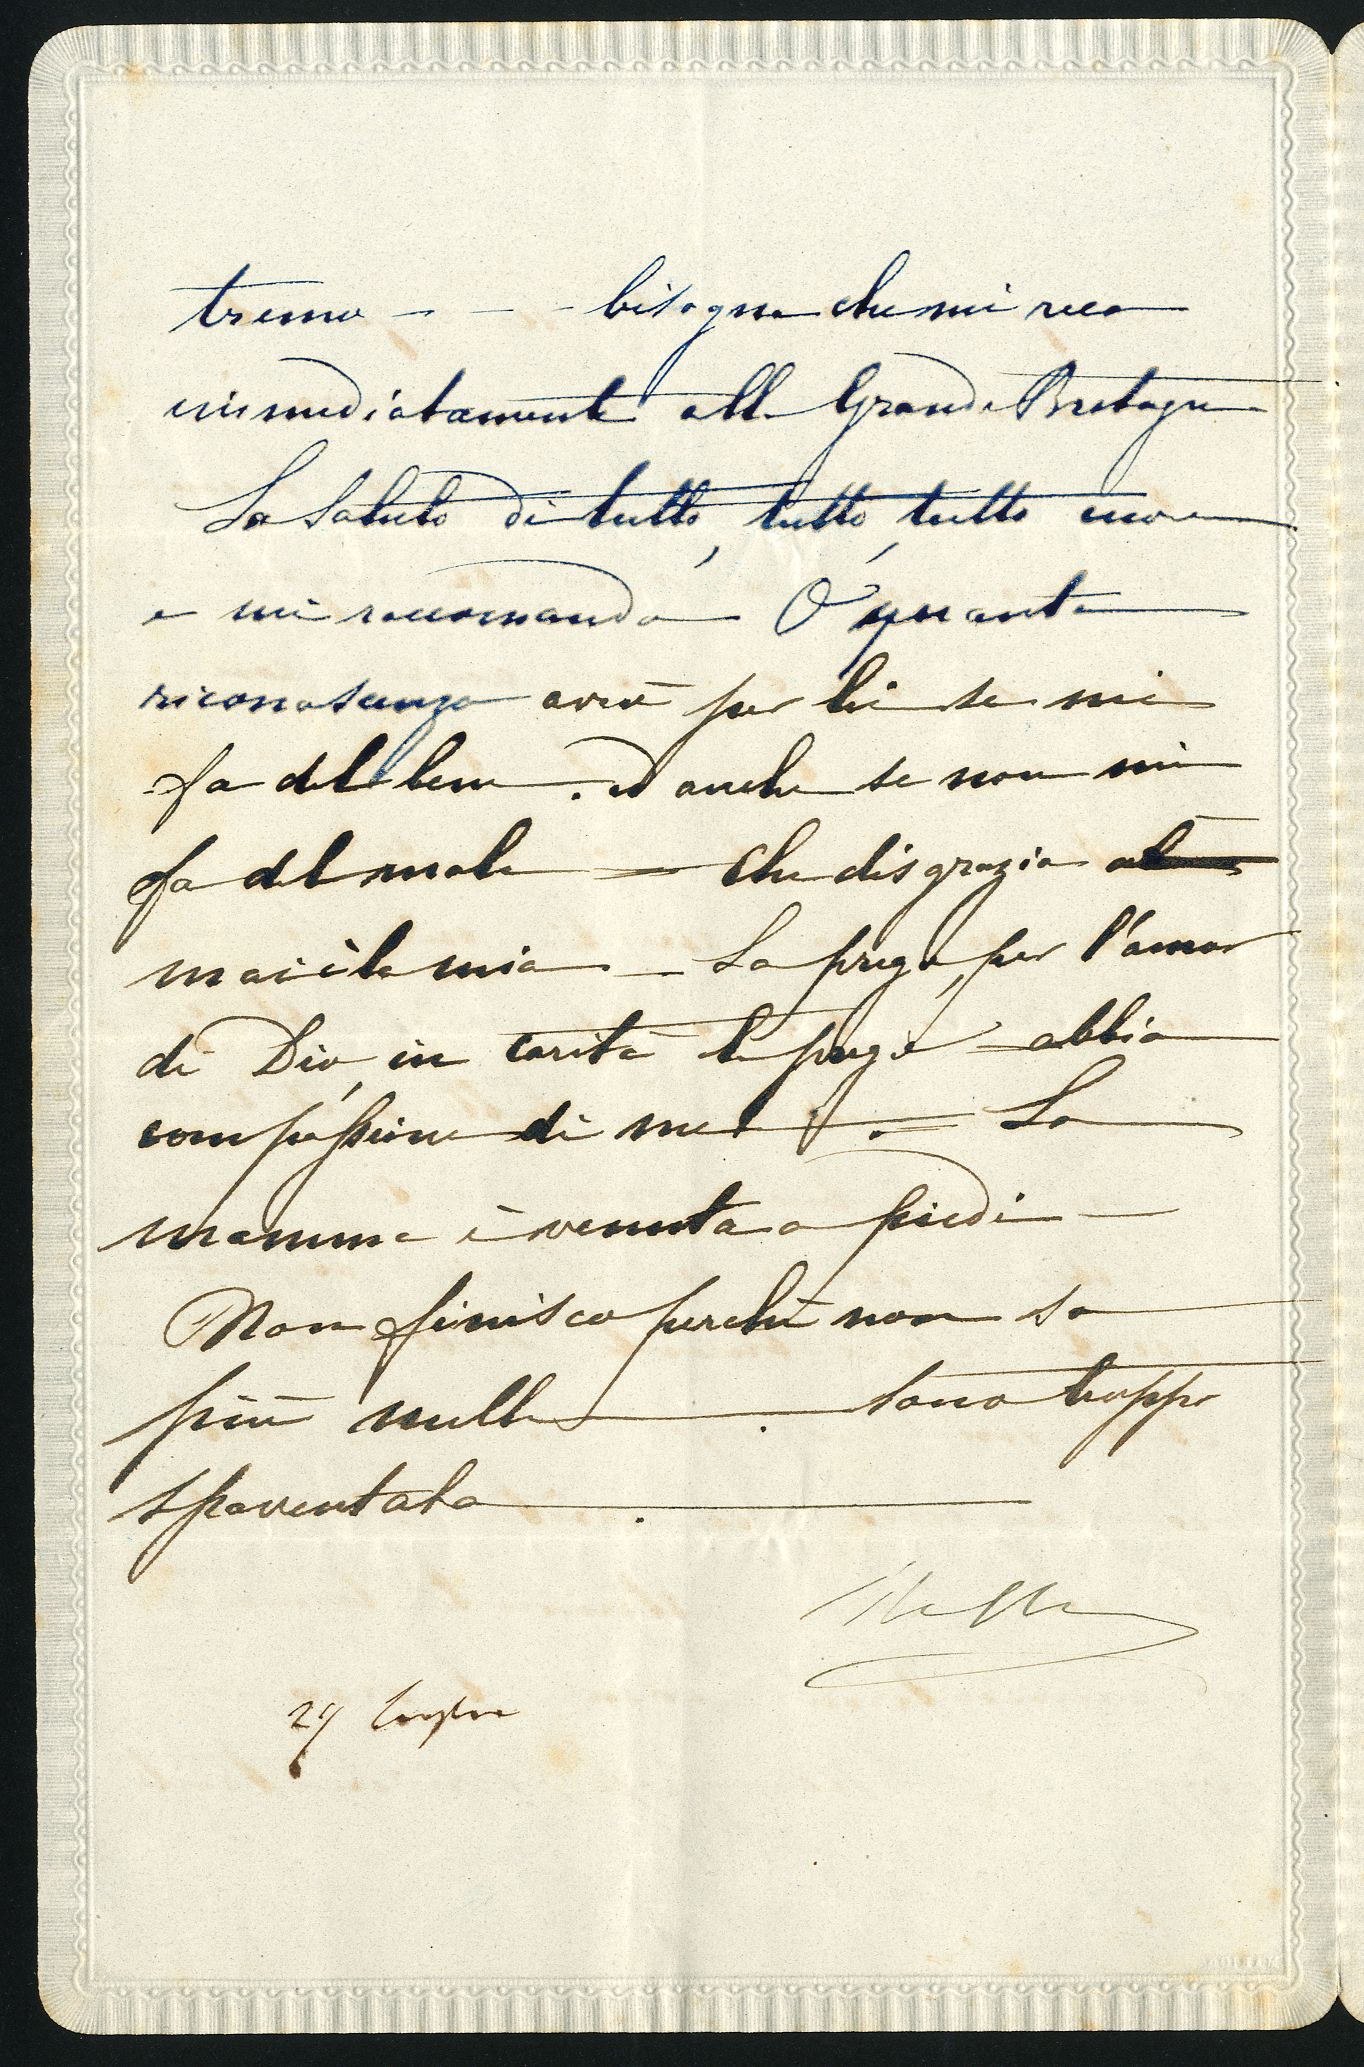 tremo - - - bisogna che mi reca
immediatamente alla Grande Bretagna
La saluto di tutto, tutto, tutto cuore
e mi raccomando O quanta
riconoscenza avrò per lei se mi
fa del bene. ed anche se non mi
fa del male = Che disgrazia
mai è la mia _ La prego, per l'amor
di Dio, in carità la prego = abbia
compassione di me ! . = La
mamma è venuta a piedi —
Non finisco perchè non so
più nulla . sono troppo
spaventata .
29 luglio